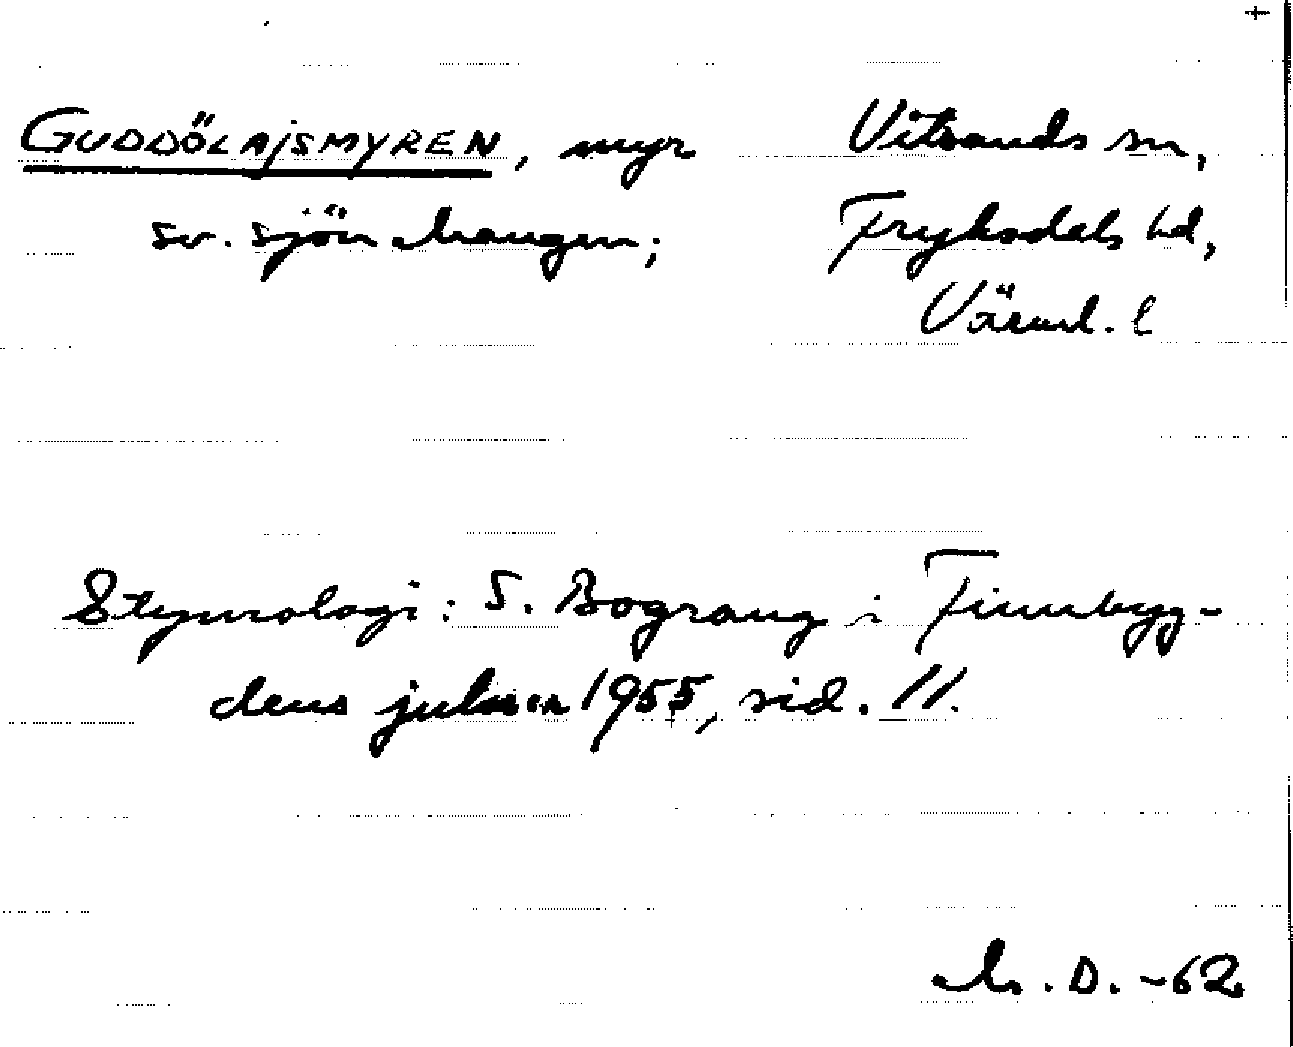 +
GUDDÖLAJSMYREN, myr
sv. sjön Mangen;
Vitsands sn,
Fryksdals hd,
Värml. l
Etymologi: S. Bograng i Finnbyg-
dens julnr 1955, sid. 11.
M. D. -62